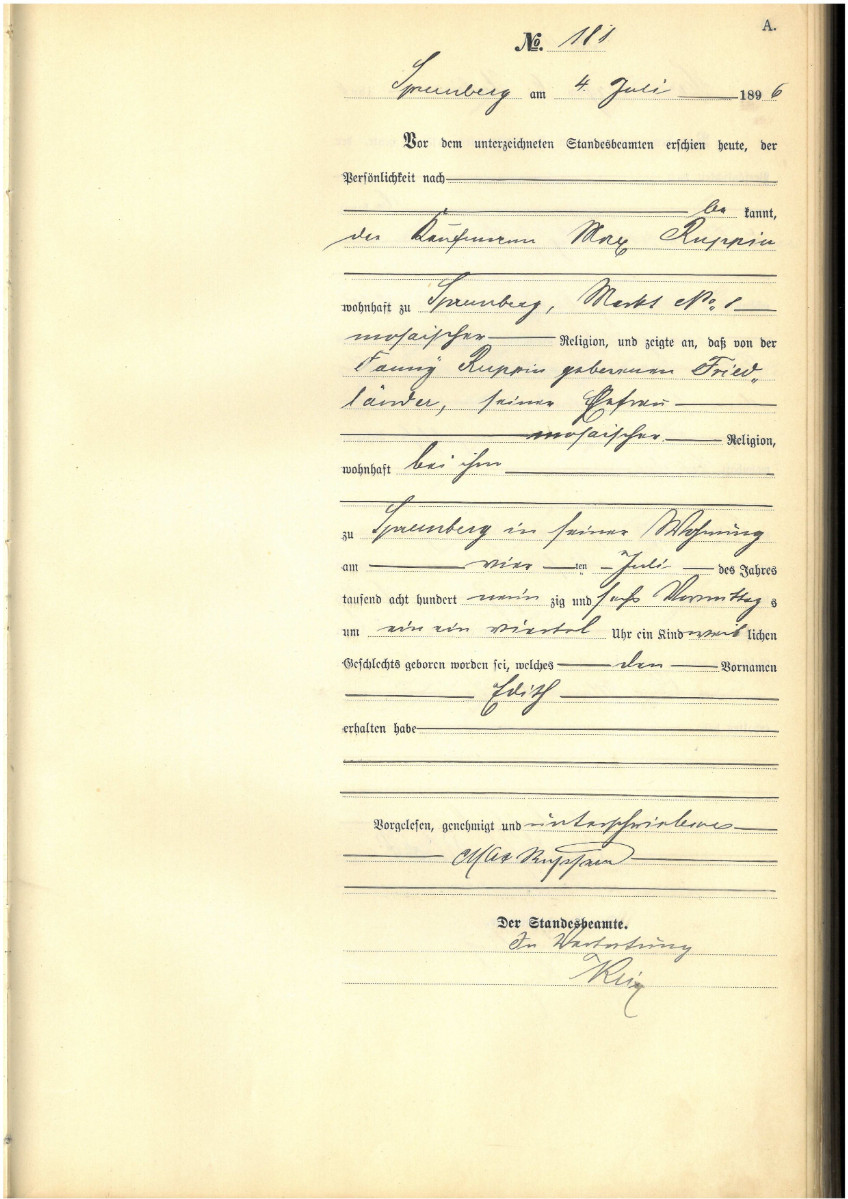 A.
No. 181
Spremberg am 4. Juli 1896
Vor dem unterzeichneten Standesbeamten erschien heute, der
Persönlichkeit nach
be kannt,
der Kaufmann Max Ruppin
wohnhaft zu Spremberg, Markt No. 1
mosaischer Religion, und zeigte an, daß von der
Fanny Ruppin geborenen Fried„
länder, seiner Ehefrau
mosaischer Religion,
wohnhaft bei ihm
zu Spremberg in seiner Wohnung
am vier ten Juli des Jahres
tausend acht hundert neun zig und sechs Vormittag s
um ein ein viertel Uhr ein Kind weib lichen
Geschlechts geboren worden sei, welches den Vornamen
Edith
erhalten habe
Vorgelesen, genehmigt und unterschrieben
Max Ruppin
Der Standesbeamte.
In Vertretung